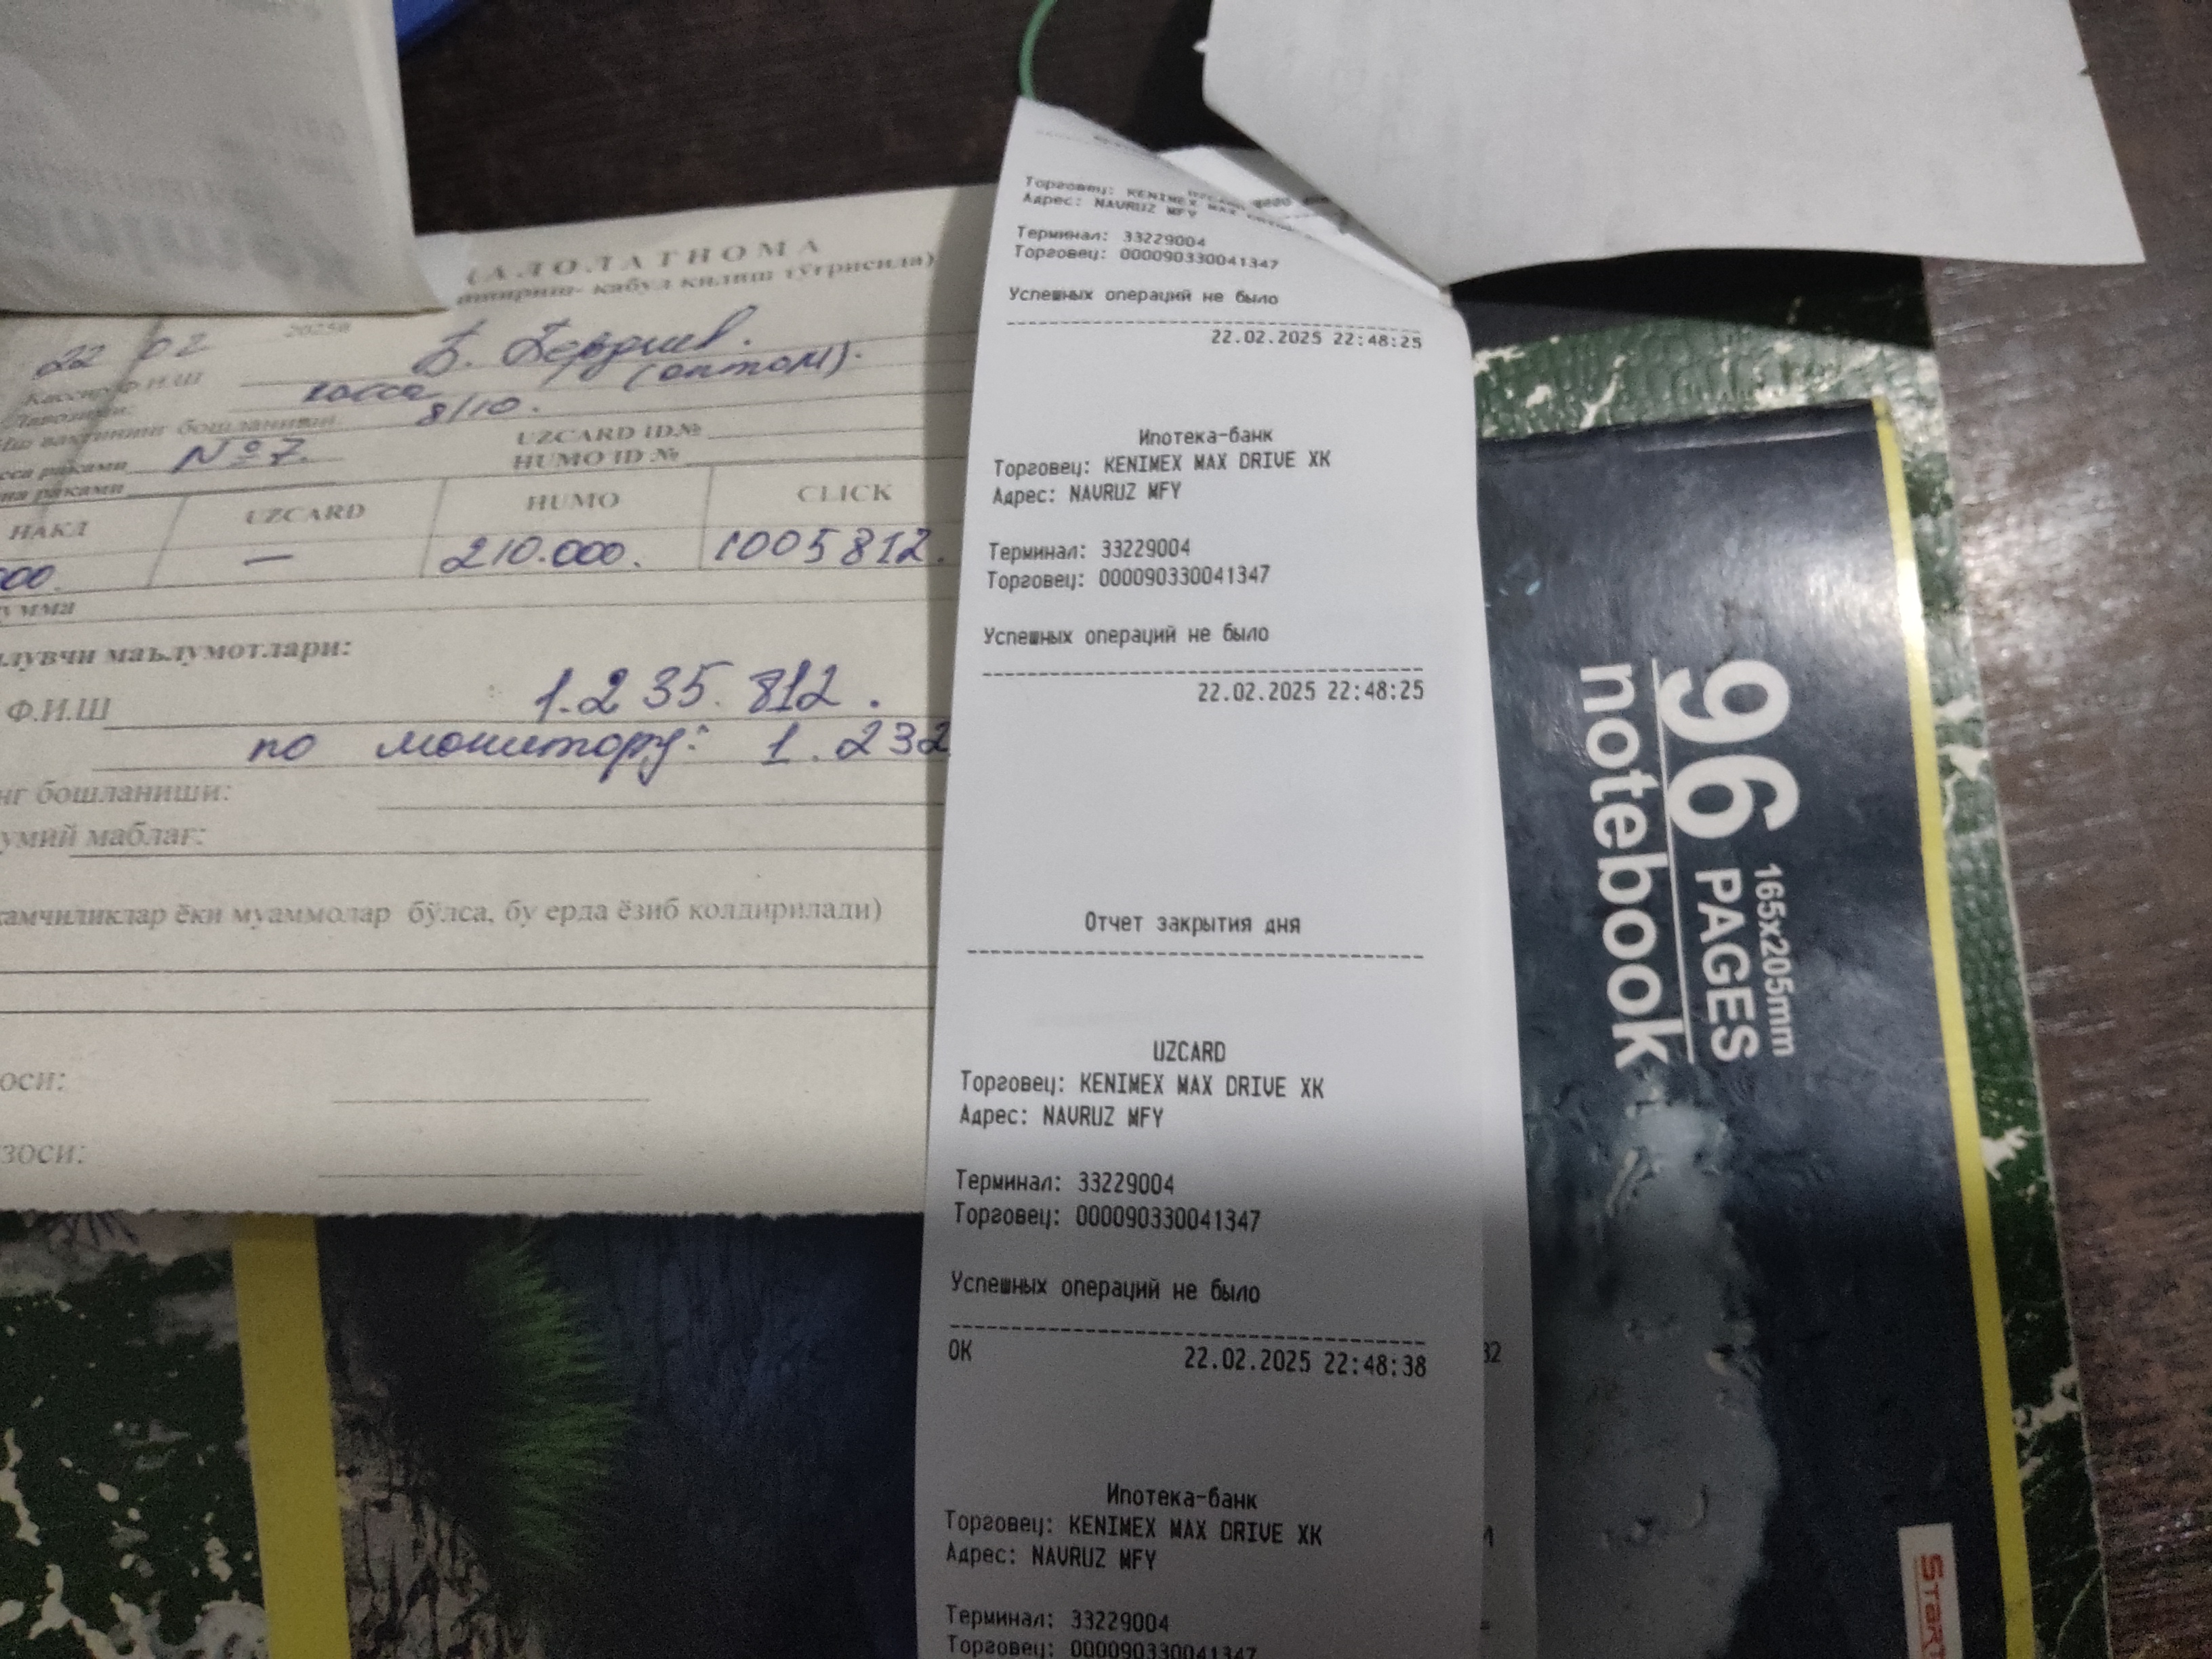 (АДОЛАТНОМА
топшириш- кабул килиш тўғрисида)
22 02 2025й
Кассир Ф.И.Ш Б. Бердиев.
Лавозими: касса (оптом).
Иш вактининг бошланиши. 8/10.
сса раками № 7. UZCARD ID.№
на раками HUMO ID №
НАКД UZCARD HUMO CLICK
000. — 210.000. 1005812.
умма
лувчи маълумотлари:
Ф.И.Ш 1.235.812.
по монитору: 1.232
нг бошланиши:
умий маблағ:
камчиликлар ёки муаммолар бўлса, бу ерда ёзиб колдирилади)
оси:
зоси:
Торговец: KENIMEX MAX
Адрес: NAVRUZ MFY
Терминал: 33229004
Торговец: 000090330041347
Успешных операций не было
22.02.2025 22:48:25
Ипотека-банк
Торговец: KENIMEX MAX DRIVE XK
Адрес: NAVRUZ MFY
Терминал: 33229004
Торговец: 000090330041347
Успешных операций не было
22.02.2025 22:48:25
Отчет закрытия дня
UZCARD
Торговец: KENIMEX MAX DRIVE XK
Адрес: NAVRUZ MFY
Терминал: 33229004
Торговец: 000090330041347
Успешных операций не было
OK 22.02.2025 22:48:38
Ипотека-банк
Торговец: KENIMEX MAX DRIVE XK
Адрес: NAVRUZ MFY
Терминал: 33229004
Торговец: 000090330041347
96 PAGES
165x205mm
notebook
START